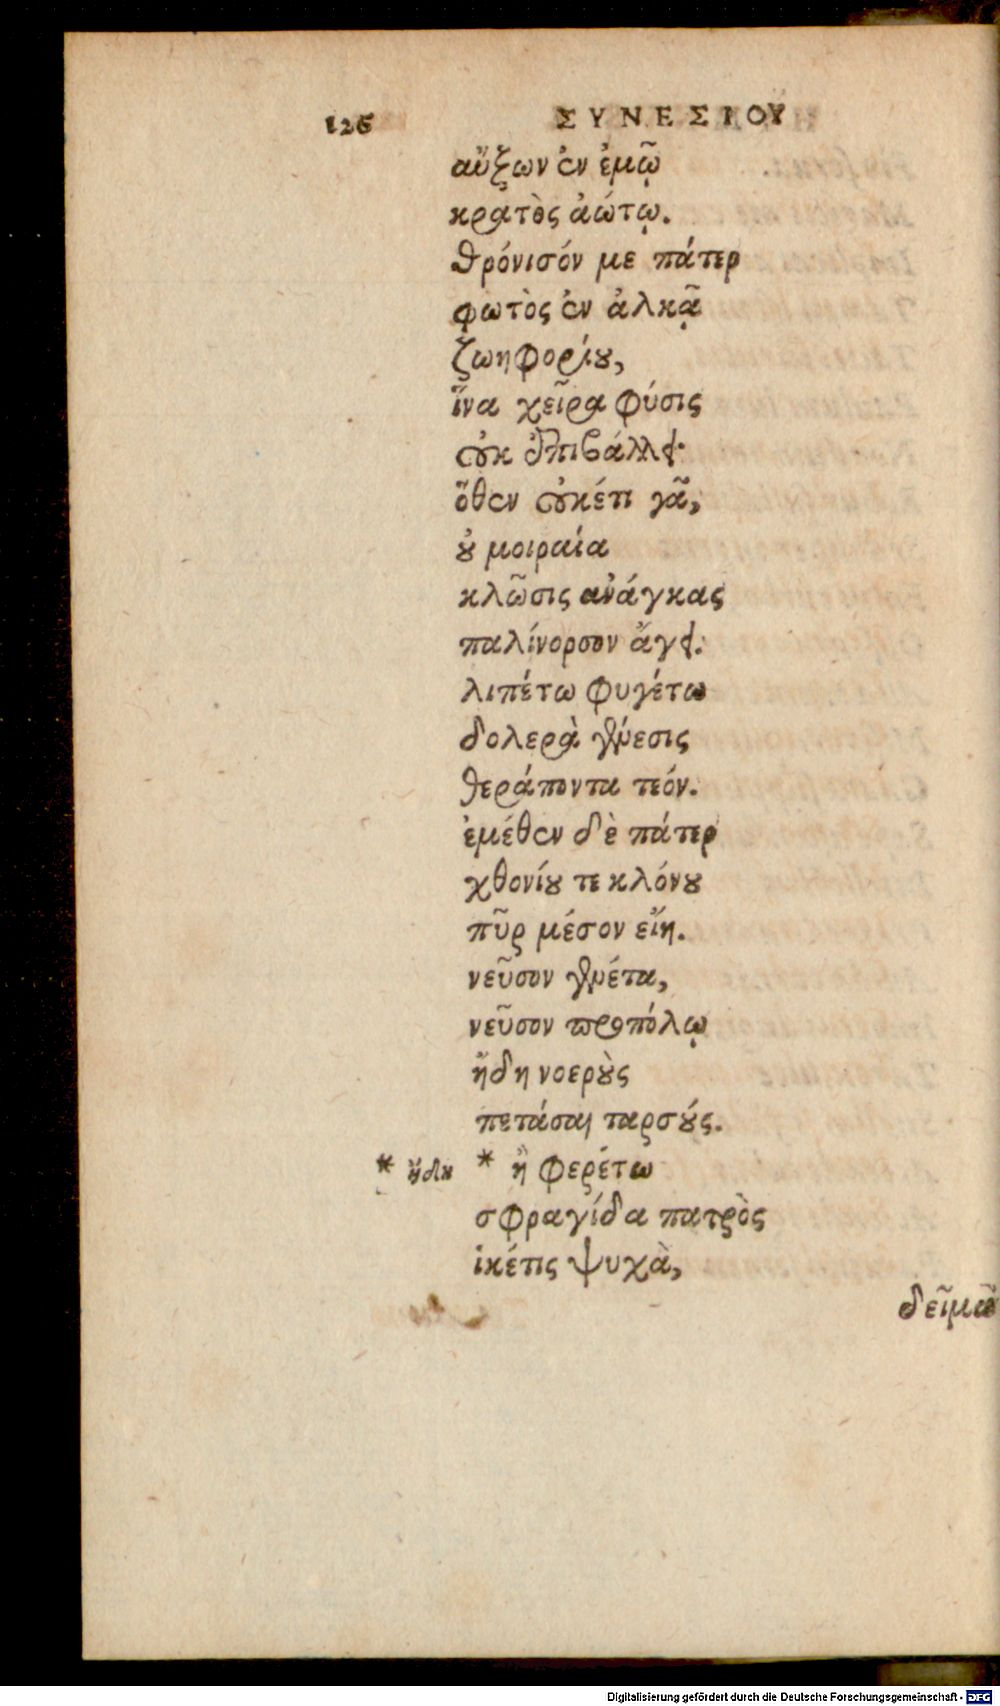 126 ΣΥΝΕΣΙΟΥ
αὔξων ἐν ἐμῷ
κρατὸς ἀώτῳ.
θρόνισόν με πάτερ
φωτὸς ἐν ἀλκᾷ
ζωηφορίου,
ἵνα χεῖρα φύσις
οὐκ ἐπιβάλλει·
ὅθεν οὐκέτι γᾶ,
οὐ μοιραία
κλῶσις ἀνάγκας
παλίνορσον ἄγει.
λιπέτω φυγέτω
δολερὰ γένεσις
θεράποντα τεόν.
ἐμέθεν δὲ πάτερ
χθονίου τε κλόνου
πῦρ μέσον εἴη.
νεῦσον γενέτα,
νεῦσον προπόλῳ
ἤδη νοεροὺς
πετάσαι ταρσούς.
* ἤδη * ἢ φερέτω
σφραγίδα πατρὸς
ἱκέτις ψυχὰ,
δεῖμα
Digitalisierung gefördert durch die Deutsche Forschungsgemeinschaft - DFG